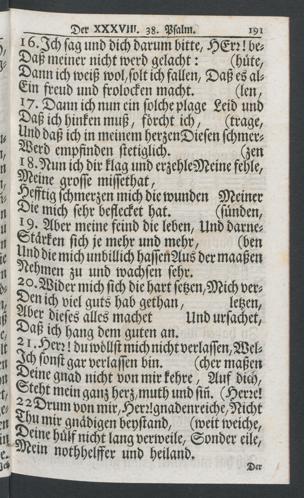 Der XXXVIII. 38. Psalm. 191
16. Jch sag und dich darum bitte, HErr! be-
Daß meiner nicht werd gelacht: (hüte,
Dann ich weiß wol, solt ich fallen, Daß es al-
Ein freud und frolocken macht. (len,
17. Dann ich nun ein solche plage Leid und
Daß ich hinken muß, förcht ich, (trage,
Und daß ich in meinem herzen Diesen schmer-
Werd empfinden stetiglich. (zen
18. Nun ich dir klag und erzehle Meine fehle,
Meine grosse missethat,
Hefftig schmerzen mich die wunden Meiner
Die mich sehr beflecket hat. (sünden,
19. Aber meine feind die leben, Und darne-
Stärken sich je mehr und mehr, (ben
Und die mich unbillich hassen Aus der maaßen
Nehmen zu und wachsen sehr.
20. Wider mich sich die hart setzen, Mich ver-
Den ich viel guts hab gethan, letzen,
Aber dieses alles machet Und ursachet,
Daß ich hang dem guten an.
21. Herr! du wöllst mich nicht verlassen, Wel-
Jch sonst gar verlassen bin. (cher maßen
Deine gnad nicht von mir kehre, Auf dich,
Steht mein ganz herz, muth und sin. (Herre!
22 Drum von mir, Herr! gnadenreiche, Nicht
Thu mir gnädigen beystand, (weit weiche,
Deine hülf nicht lang verweile, Sonder eile,
Mein nothhelffer und heiland.
Der